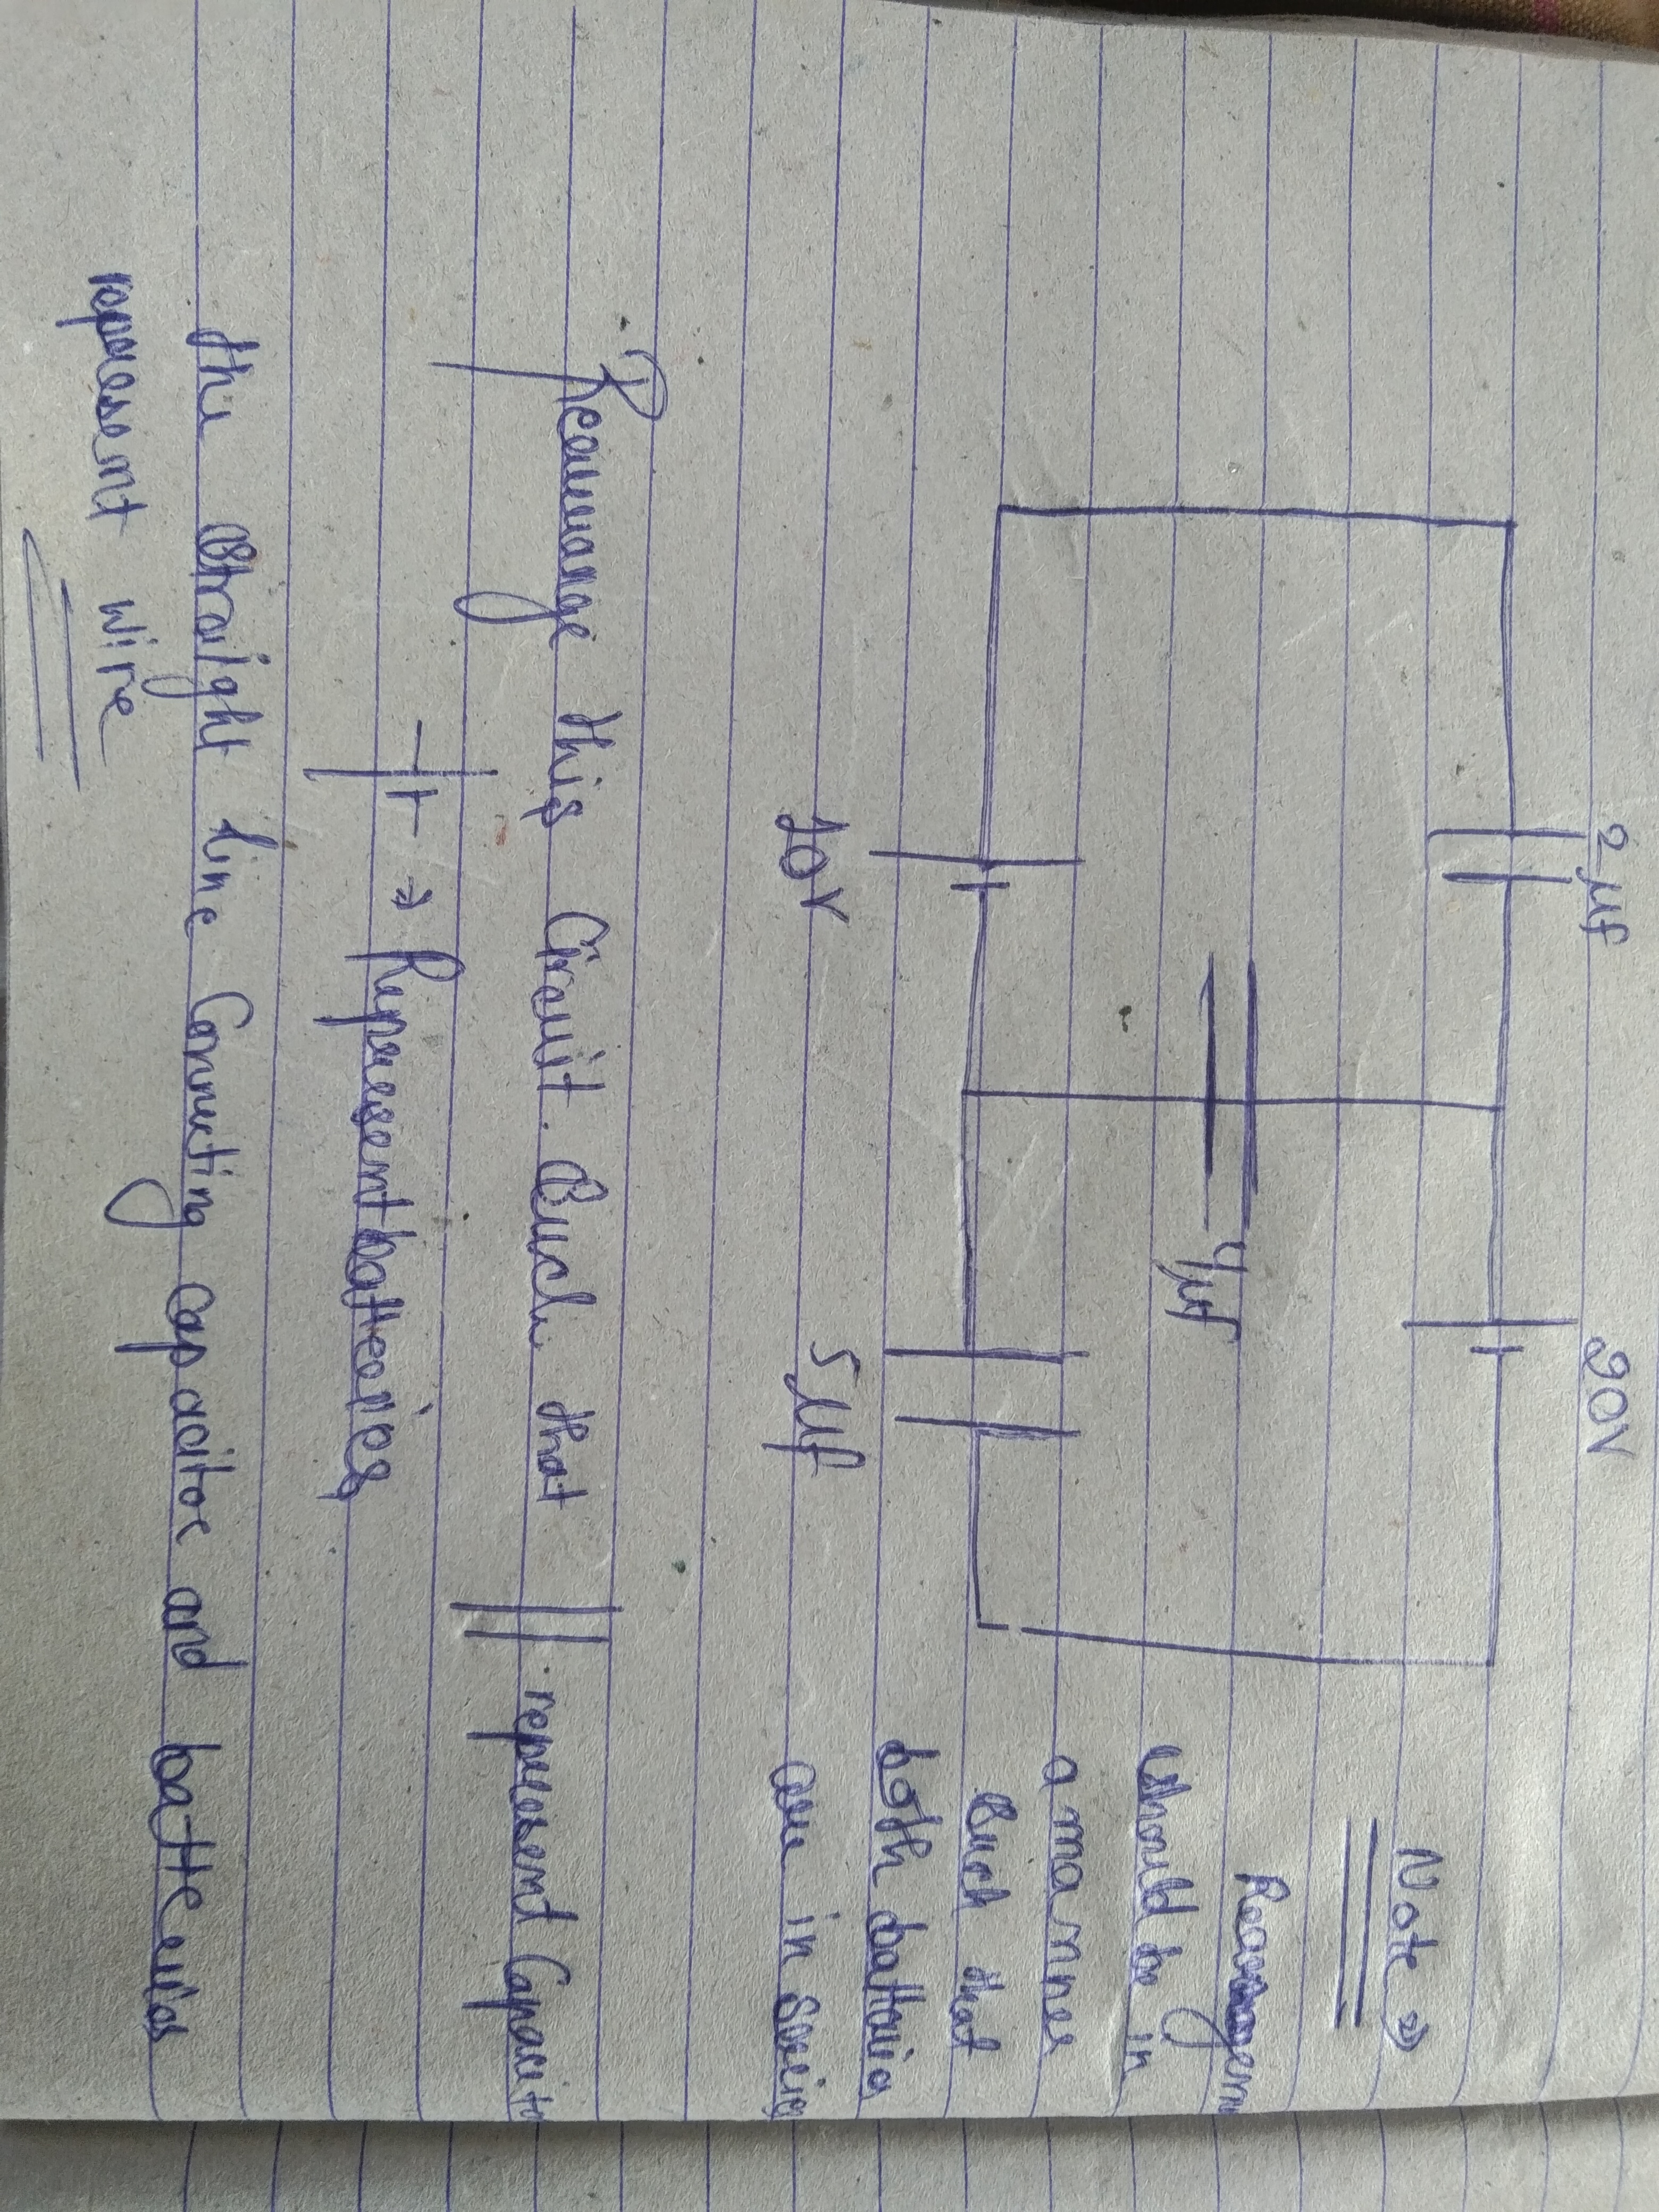 2 μf
20V
4μf
10V
5μf
Note ⇒
should be in
a manner
such that
both batteries
are in series
Rearrange this Circuit. Such that
represent Capacitor
→ Represent batteries
the straight line Connecting capacitor and batteries
represent wire